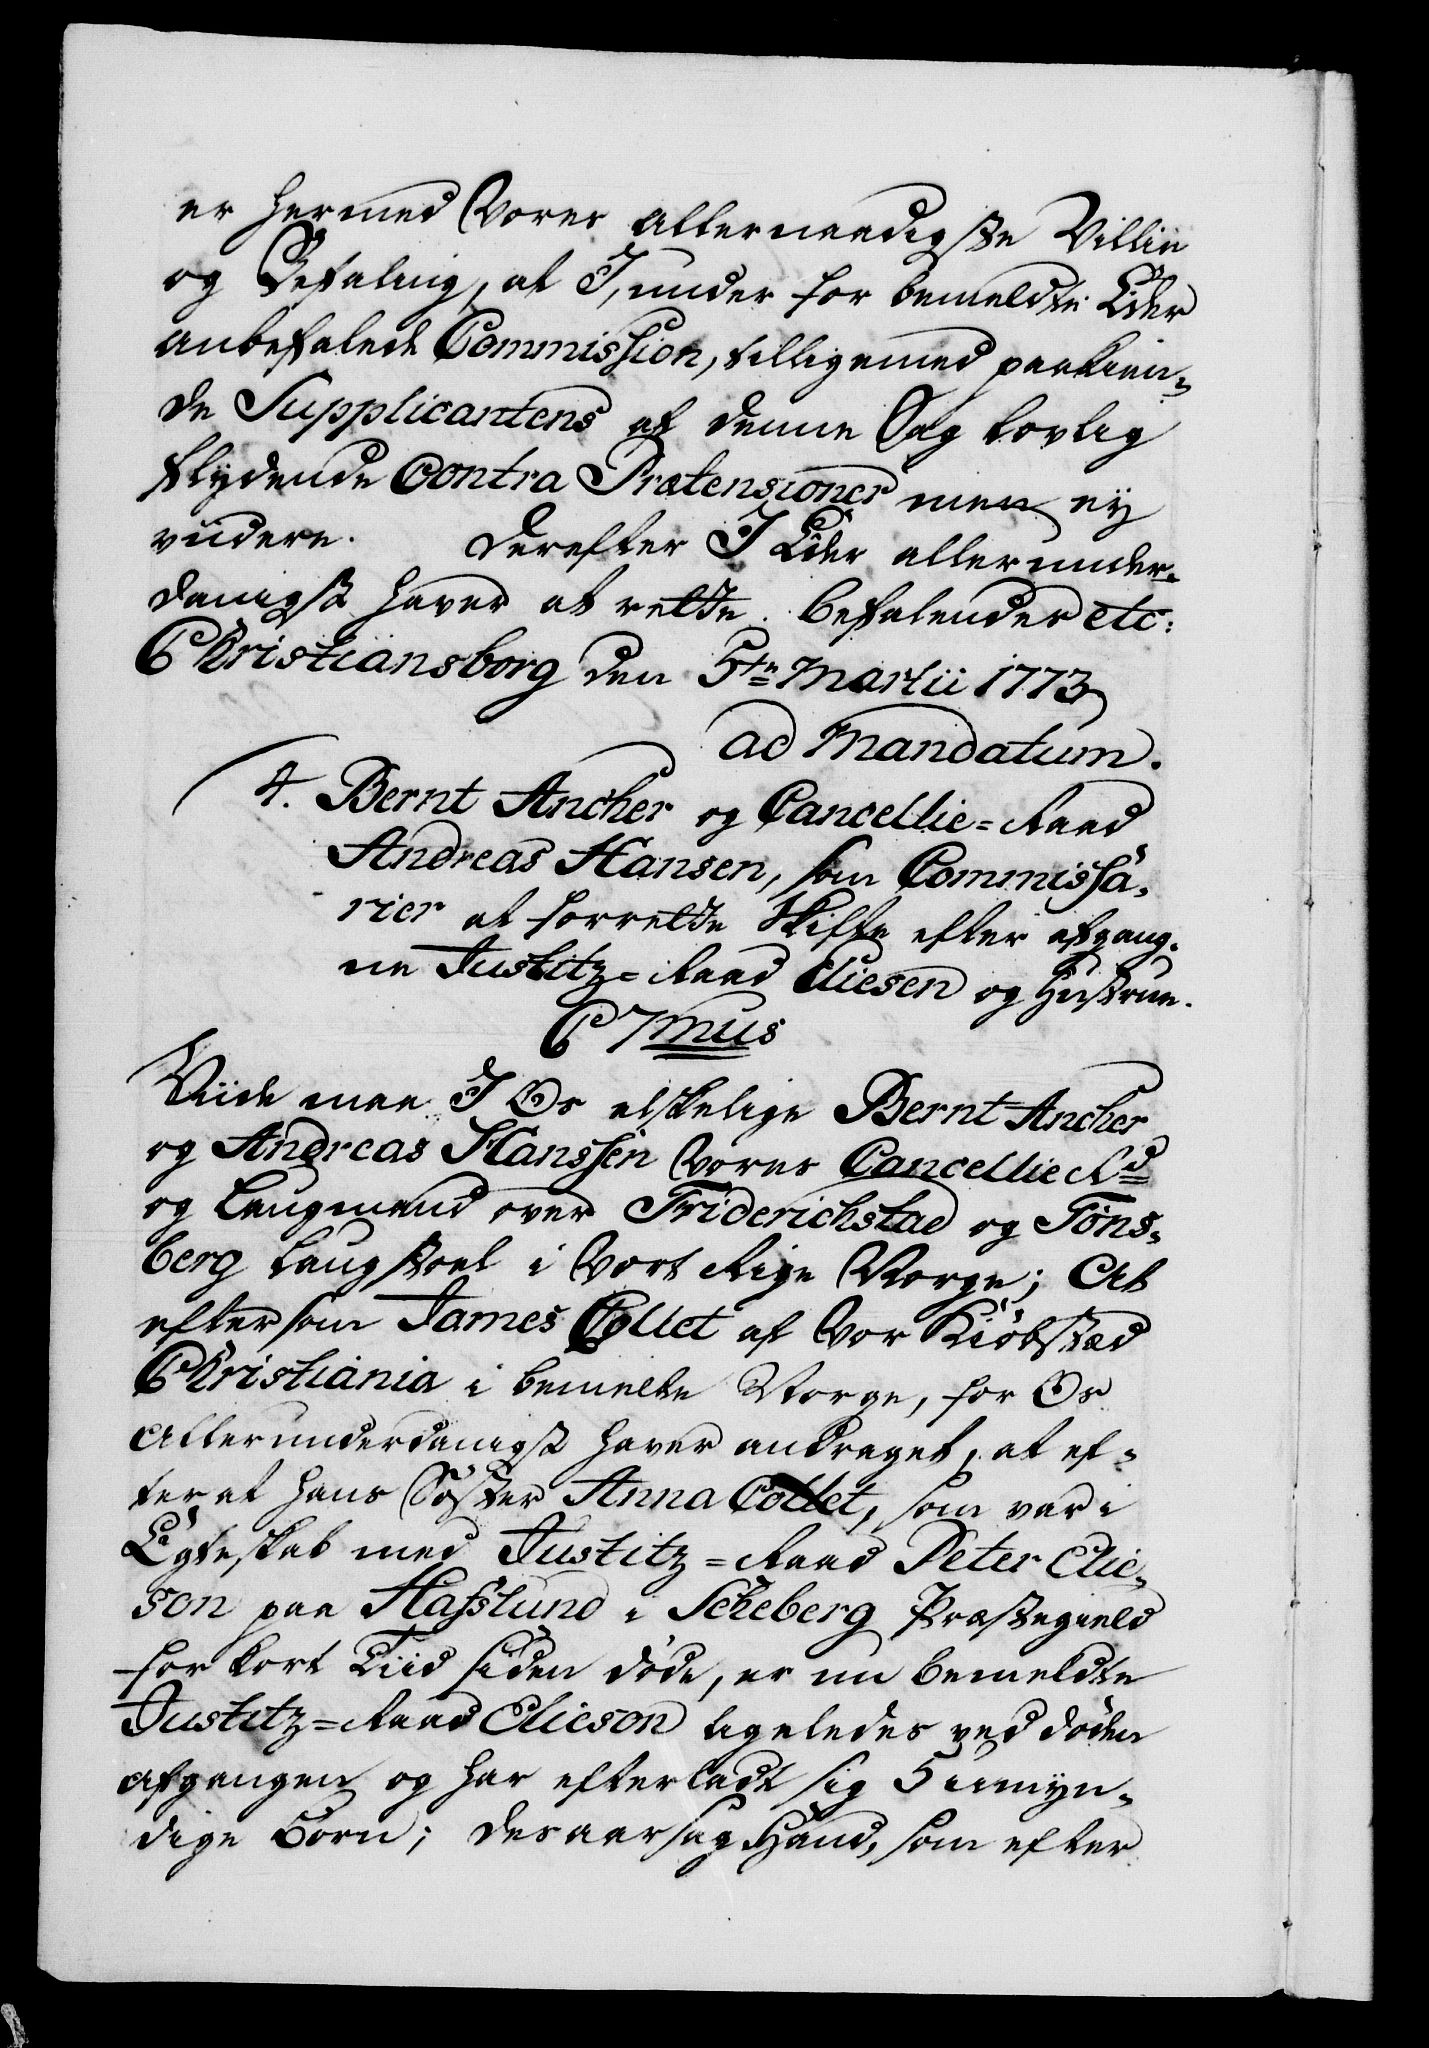 er hermed Vores allernaadigste Villie
og Befaling, at I, under for bemeldte Eder
anbefalede Commission, tilligemed paakien-
de Supplicantens af denne Sag lovlig
flydende Contra Prætensioner men ey
viidere. Derefter I Eder allerunder-
danigst haver at rette. Befalendes etc:
Christiansborg den 5te Martii 1773
ad Mandatum.
4. Bernt Ancher og Cancellie=Raad
Andreas Hansen, som Commissa-
rier at forrette Skifte efter afgang-
ne Justitz=Raad Eliesen og Hustrue.
C 7mus
Viide maa I Os elskelige Bernt Ancher
og Andreas Hanssen Vores Cancellie Rd
og Laugmand over Friderichstad og Töns-
berg Laugstoel i Vort Rige Norge; At
eftersom James Collet af Vor Kiöbstad
Christiania i bemelte Norge, for Os
allerunderdanigst haver andraget, at ef-
ter at hans Söster Anna Collet, som var i
Egteskab med Justitz=Raad Peter Elie-
son paa Hafslund i Scheberg Præstegield
for kort Tiid siden döde, er nu bemeldte
Justitz=Raad Elieson ligeledes ved döden
afgangen og har efterladt sig 5 umyn-
dige Börn; desaarsag Hand, som efter